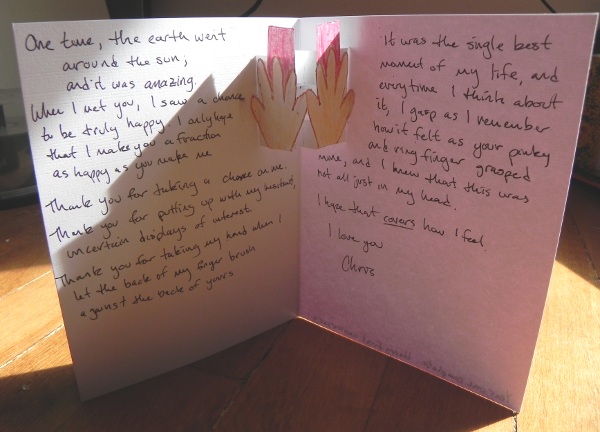 One time, the earth went
around the sun;
and it was amazing.
When I met you, I saw a chance
to be truly happy. I only hope
that I make you a fraction
as happy as you make me
Thank you for taking a chance on me.
Thank you for putting up with my hesitant,
uncertain displays of interest
Thank you for taking my hand when I
let the back of my finger brush
against the back of yours
It was the single best
moment of my life, and
everytime I think about
it, I gasp as I remember
how it felt as your pinkey
and ring finger grasped
mine, and I knew that this was
not all just in my head.
I hope that covers how I feel.
I love you
Chris